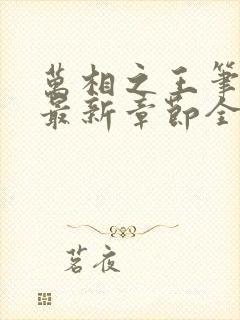 萬相之王筆
最新章節全
茗夜